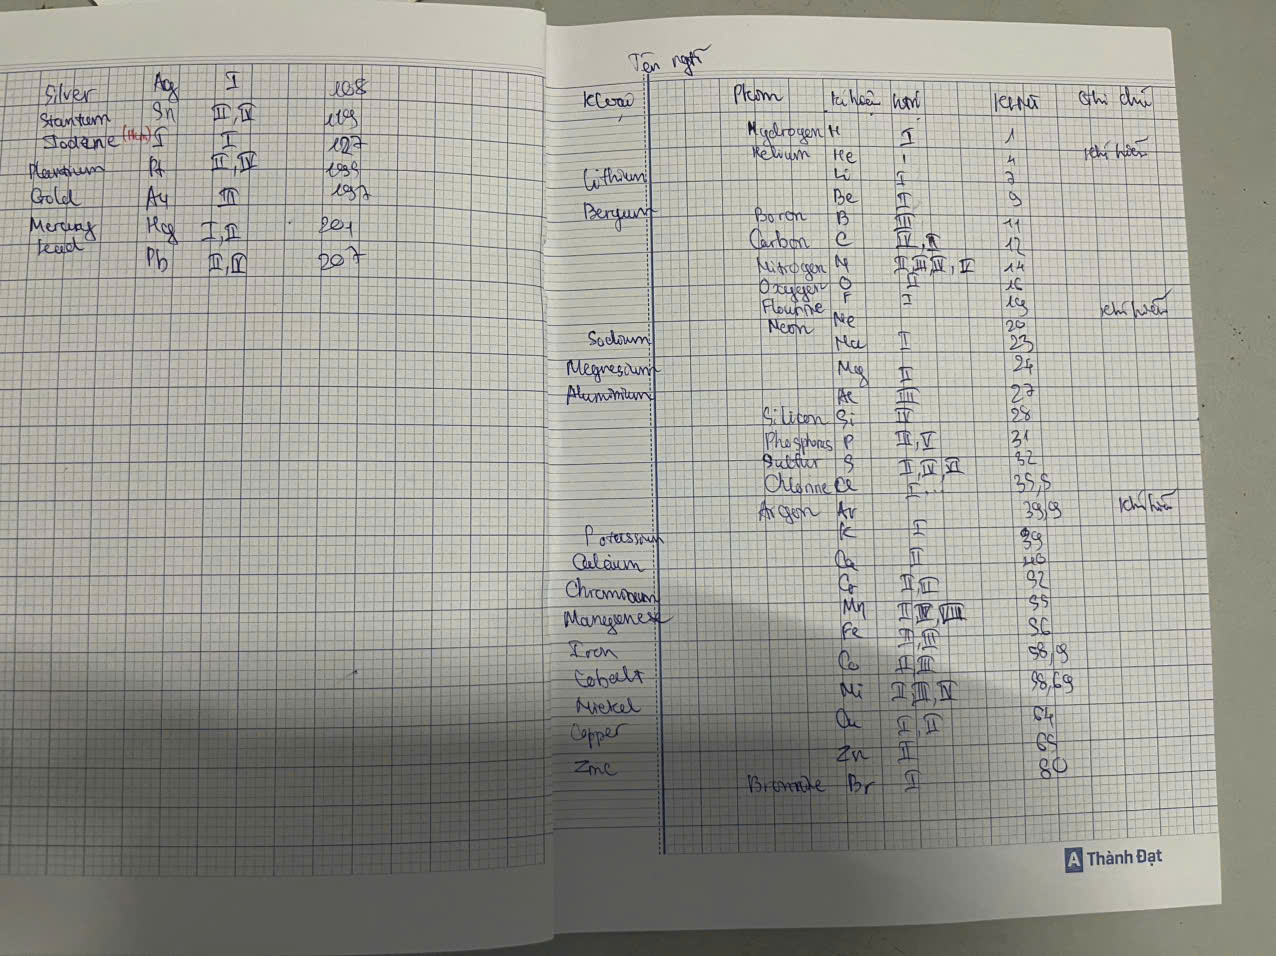 Silver Ag I 108
Stantum Sn II, IV 119
Iodine (Hem) I I 127
Plantium Pt II, IV 195
Gold Au III 197
Mercury Hg I, II 201
Lead Pb II, IV 207
Tên ngtố
Kloại Pkim Kí hoá htrị KLNT Ghi chú
Hydrogen H I 1
Helium He - 4 khí hiếm
Lithium Li I 7
Beryum Be II 9
Boron B III 11
Carbon C IV, II 12
Nitrogen N II, III, IV, V 14
Oxygen O II 16
Flourine F I 19
Neon Ne 20 khí hiếm
Sodium Na I 23
Megnesium Mg II 24
Aluminium Al III 27
Silicon Si IV 28
Phosphorus P III, V 31
Sulfur S II, IV, VI 32
Chlorine Cl I... 35,5
Argon Ar 39,9 khí hiếm
Potassium K I 39
Calcium Ca II 40
Chromium Cr II, III 52
Manganese Mn II IV, VII 55
Iron Fe II, III 56
Cobalt Co II III 58,9
Nickel Ni II, III, IV 58,69
Copper Cu I, II 64
Zinc Zn II 65
Bromine Br I 80
Thành Đạt